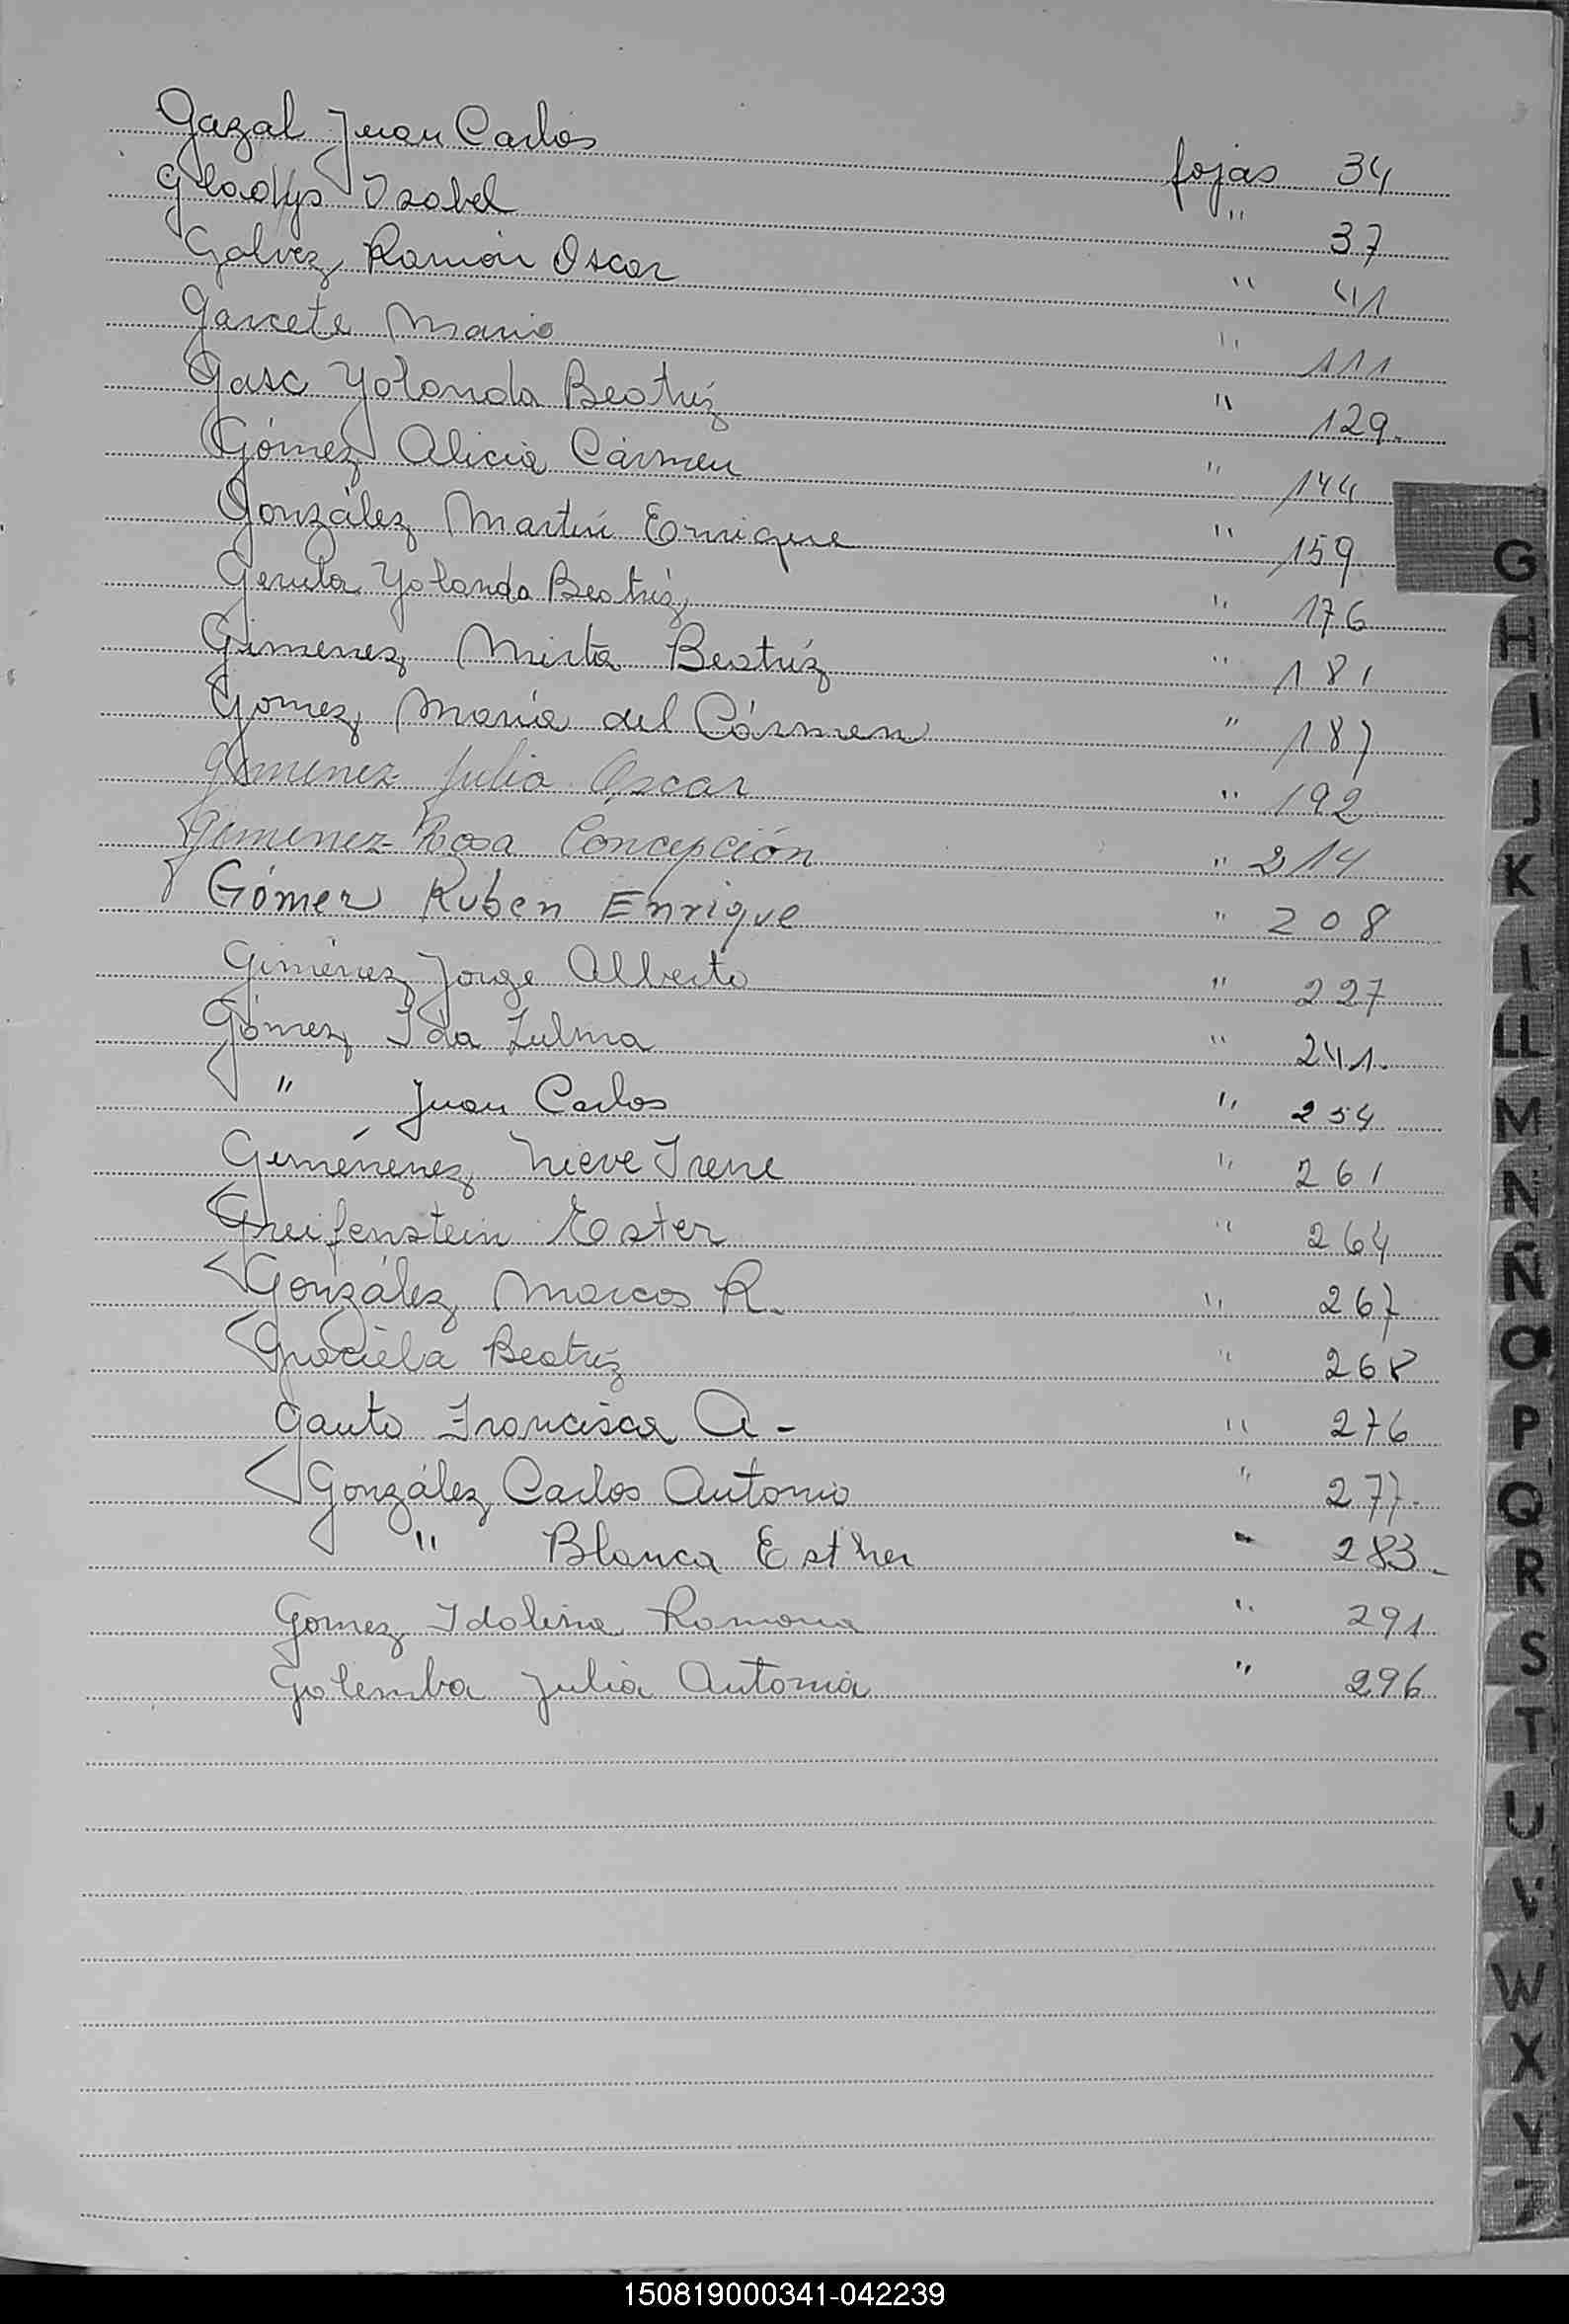 Gazal Juan Carlos fojas 34
Gladys Isabel " 37
Galvez Ramón Oscar " 41
Garcete Mario " 111
Gasc Yolanda Beatríz " 129.
Gómez Alicia Cármen " 144
González Martín Enrique " 159
Gerula Yolanda Beatríz " 176
Gimenez Mirta Beatríz " 181
Gomez María del Cármen " 187
Gimenez Julio Oscar " 192
Gimenez Rosa Concepción " 214
Gómez Ruben Enrique " 208
Giménez Jorge Alberto " 227
Gómez Ida Zulma " 241.
" Juan Carlos " 254
Giménenez Nieve Irene " 261
Greifenstein Ester " 264
González Marcos R. " 267
Graciela Beatríz " 268
Gauto Francisca A - " 276
González Carlos Antonio " 277.
" Blanca Esther " 283.
Gomez Idolina Ramona " 291
Golemba Julia Antonia " 296
G
H
I
J
K
L
LL
M
N
Ñ
O
P
Q
R
S
T
U
V
W
X
Y
Z
150819000341-042239